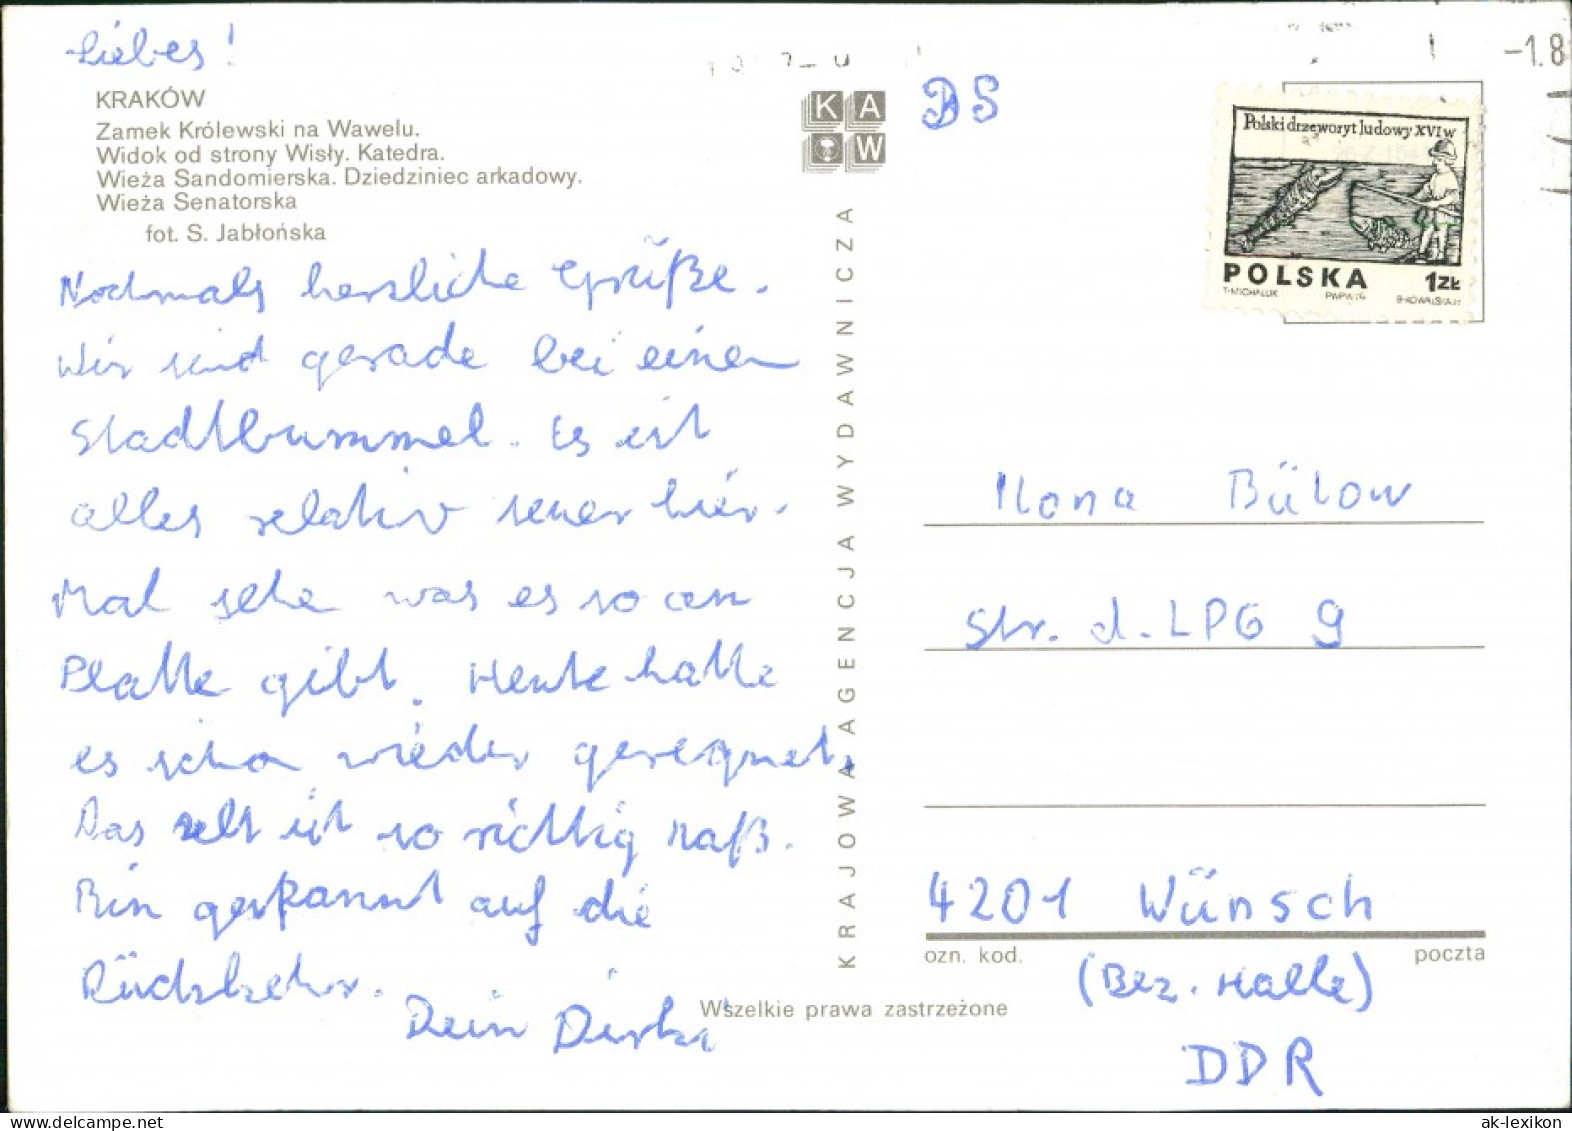 Liebes!
KRAKÓW
Zamek Królewski na Wawelu.
Widok od strony Wisły. Katedra.
Wieża Sandomierska. Dziedziniec arkadowy.
Wieża Senatorska
fot. S. Jabłońska
Nochmals herzliche Grüße.
Wir sind gerade bei einem
Stadtbummel. Es ist
alles relativ teuer hier.
Mal sehe was es so an
Platte gibt. Heute hatte
es schon wieder geregnet.
Das Zelt ist so richtig naß.
Bin gespannt auf die
Rückkehr.
Dein Dirki
K A
W
KRAJOWA AGENCJA WYDAWNICZA
Wszelkie prawa zastrzeżone
BS
-1.8
Polski drzeworyt ludowy XVI w
POLSKA 1ZŁ
T. MICHALUK PWPW 74 B. KOWALSKA
Ilona Bülow
Str. d. LPG 9
4201 Wünsch
ozn. kod. poczta
(Bez. Halle)
DDR
ak-lexikon